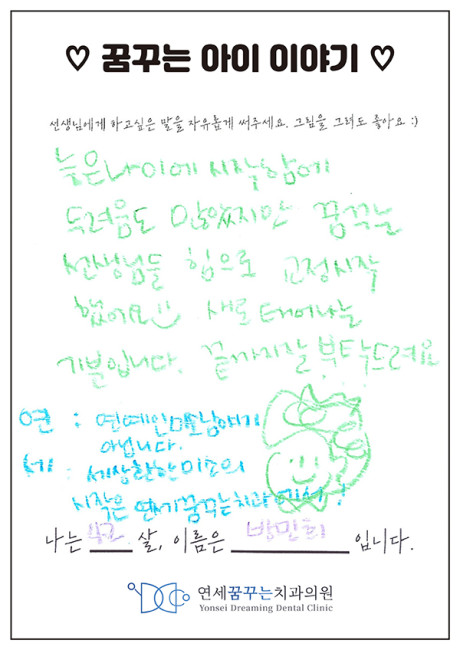 ♡ 꿈꾸는 아이 이야기 ♡
선생님에게 하고싶은 말을 자유롭게 써주세요. 그림을 그려도 좋아요 :)
늦은나이에 시작함에
두려움도 많았지만 꿈꾸는
선생님들 힘으로 교정시작
했어요 새로 태어나는
기분입니다. 끝까지잘 부탁드려요
연 : 연예인만
아닙니다.
세 : 세상환한미소의
시작은 연세꿈꾸는치과에서!
나는 42 살, 이름은 방민희 입니다.
연세꿈꾸는치과의원
Yonsei Dreaming Dental Clinic